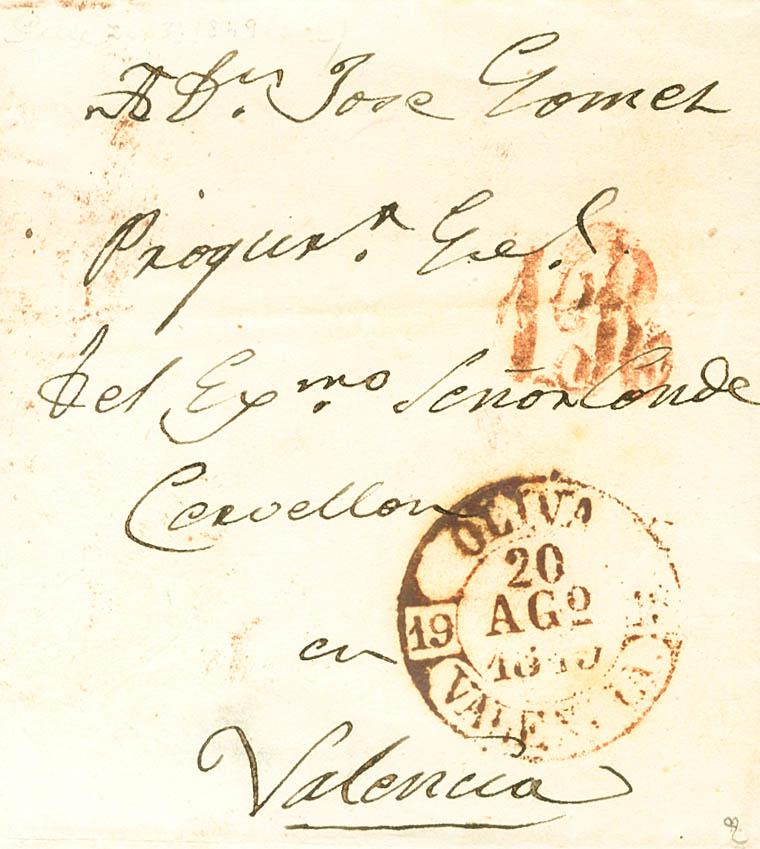 A Dn. Jose Gomez
Procurr. Gel.
del Exmo. Señor Conde
Cervellon
en
Valencia
OLIVA
20
AGº
19
VALENCIA